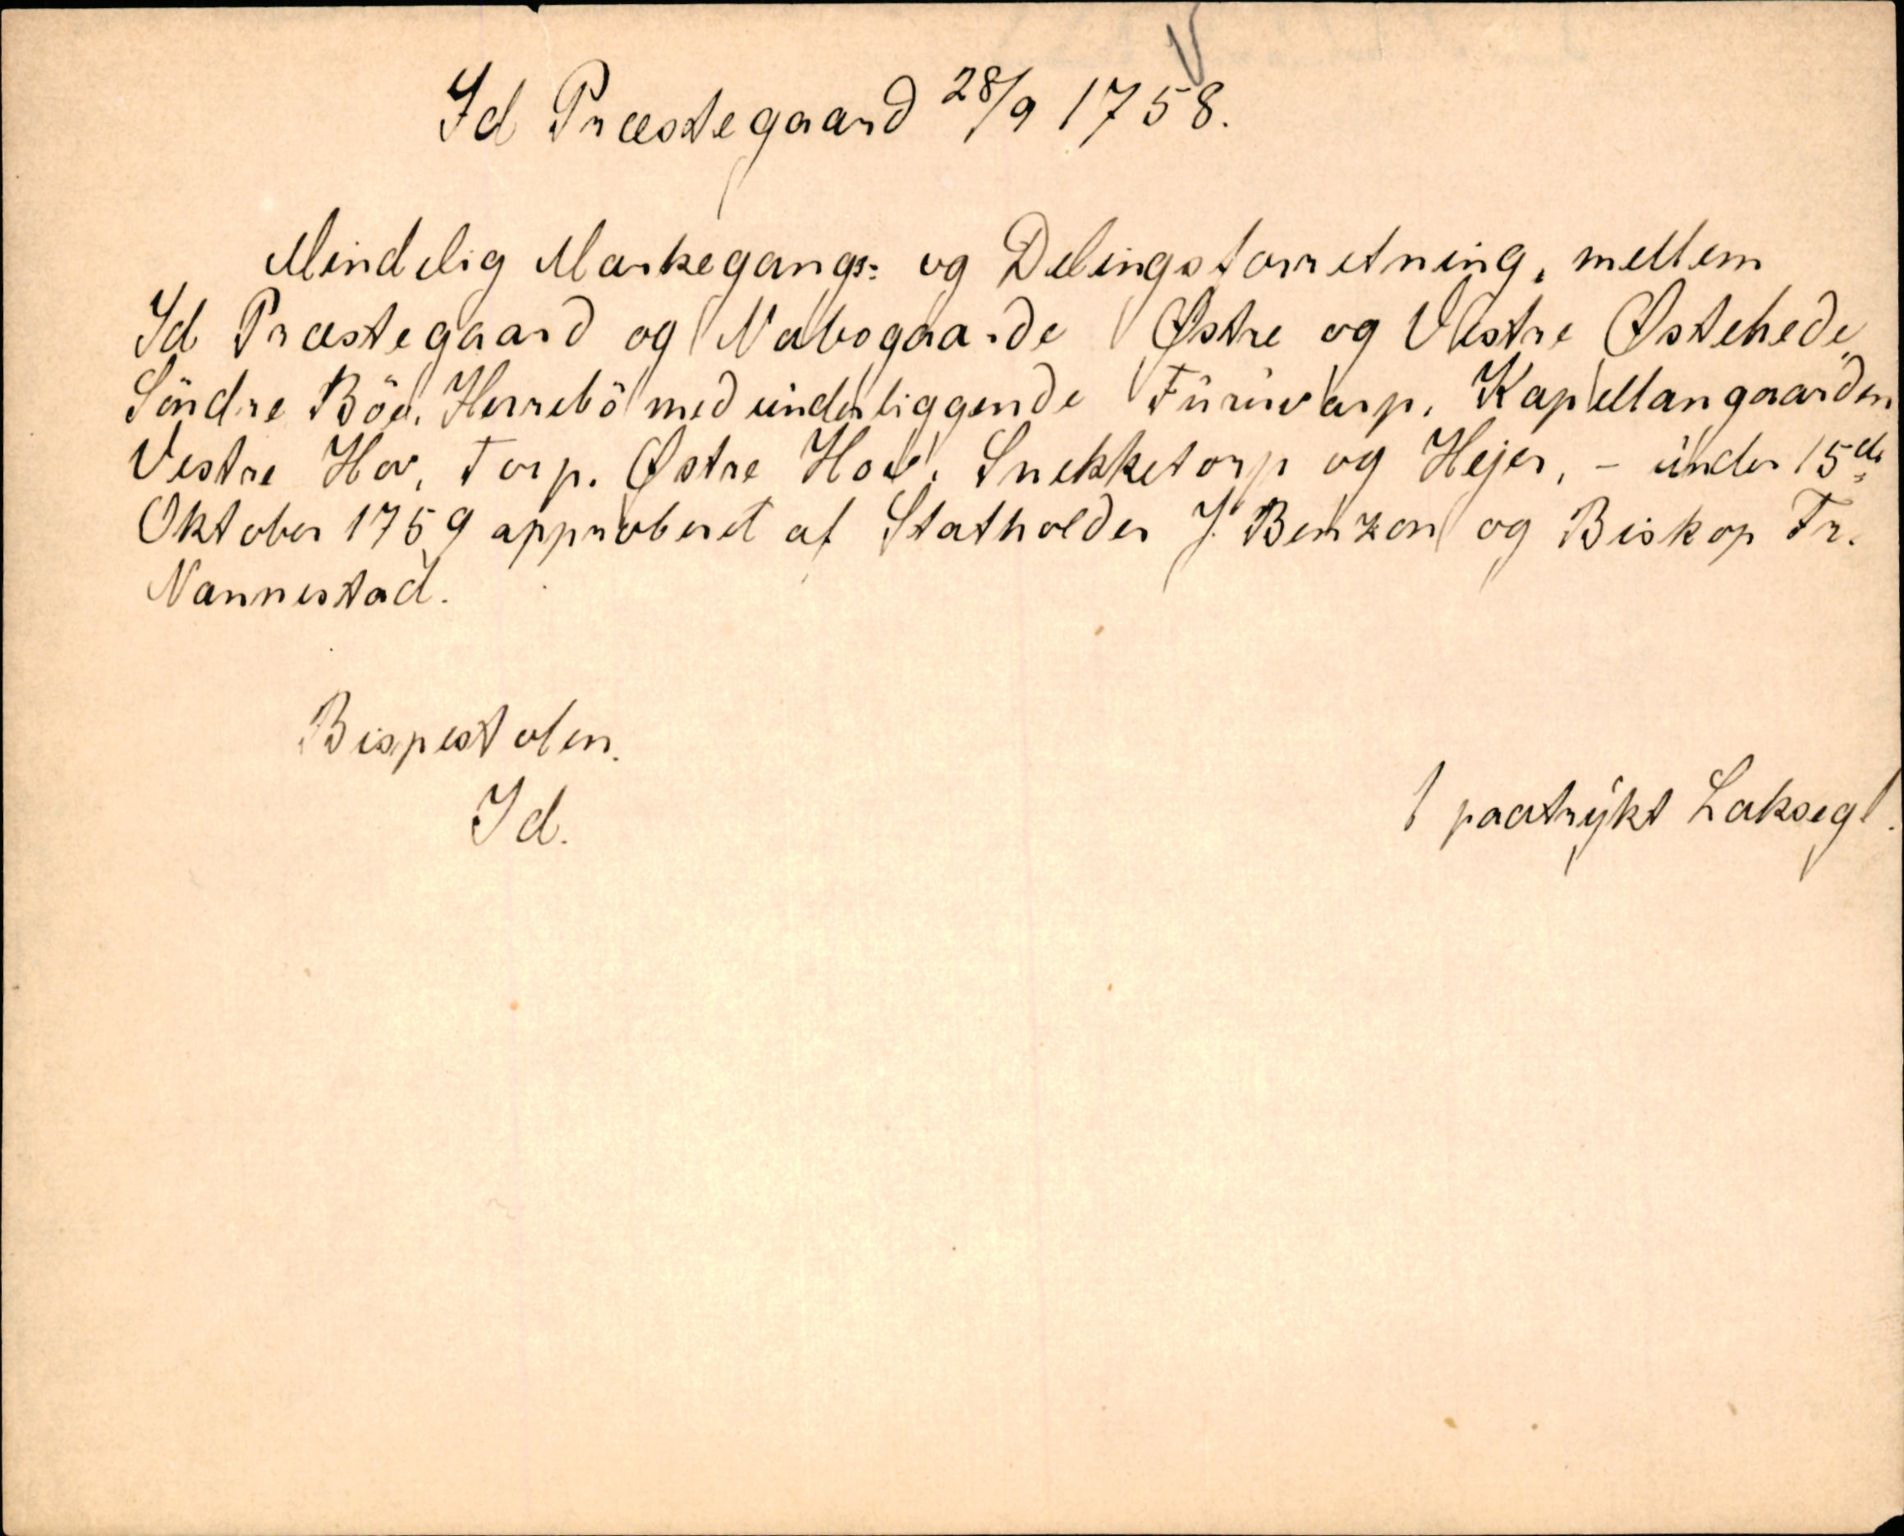 Id Præstegaard 28/9 1758.
Mindelig Markegangs- og Delingsforretning, mellem
Id Præstegaard og Nabogaarde Østre og Vestre Østehede,
Söndre Böe, Herrebö med underliggende Furuvarp, Kapellangaarden
Vestre Hov, Torp. Østre Hov, Snekketorp og Hejer, - under 15de
Oktober 1759 approberet af Statholder J. Benzon og Biskop Fr.
Nannestad.
Bispestolen.
Id.
1 paatrykt Laksegl.